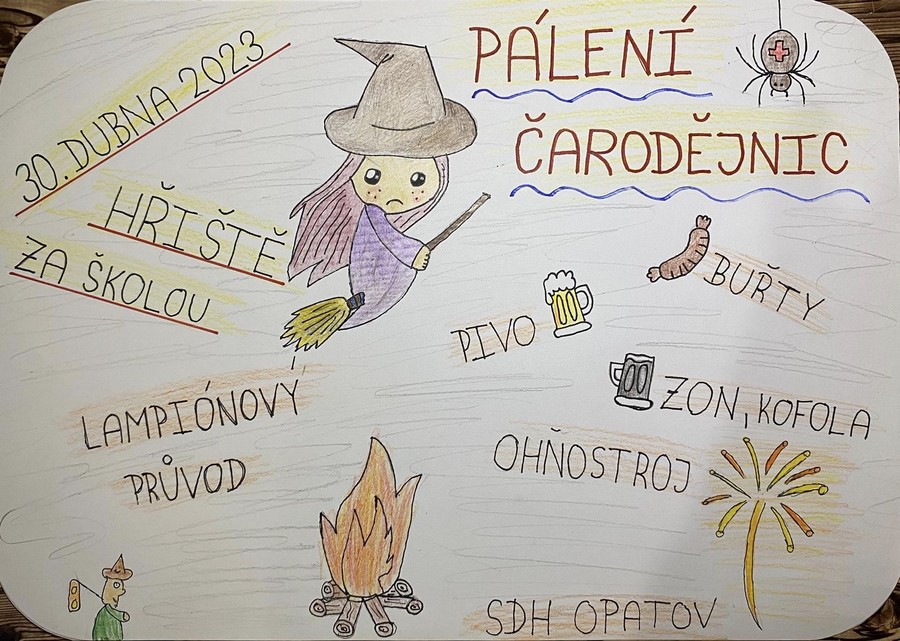 PÁLENÍ
ČARODĚJNIC
30. DUBNA 2023
HŘIŠTĚ
ZA ŠKOLOU
BUŘTY
PIVO
ZON, KOFOLA
LAMPIÓNOVÝ
PRŮVOD
OHŇOSTROJ
SDH OPATOV